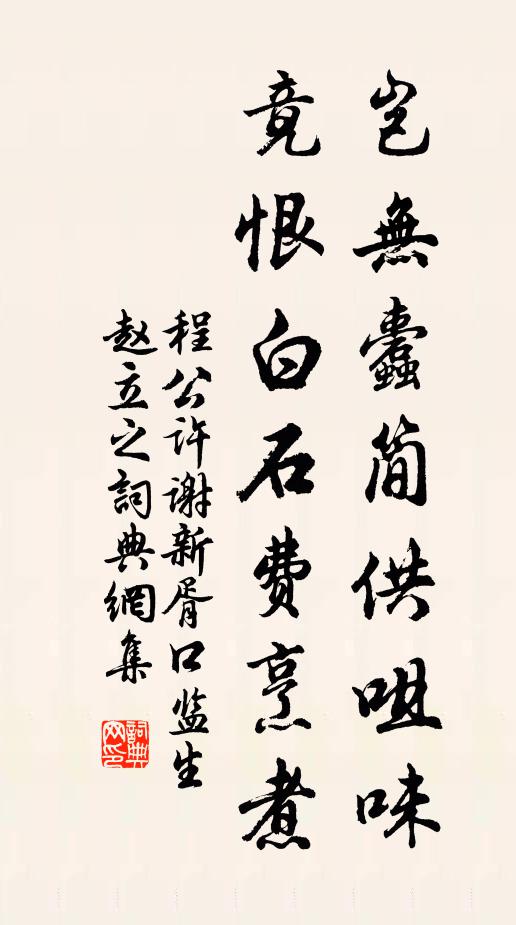 岂無蠹简供咀味
竟恨白石费烹煮
程公许谢新胥口监生
赵立之詞典網集
詞典網印